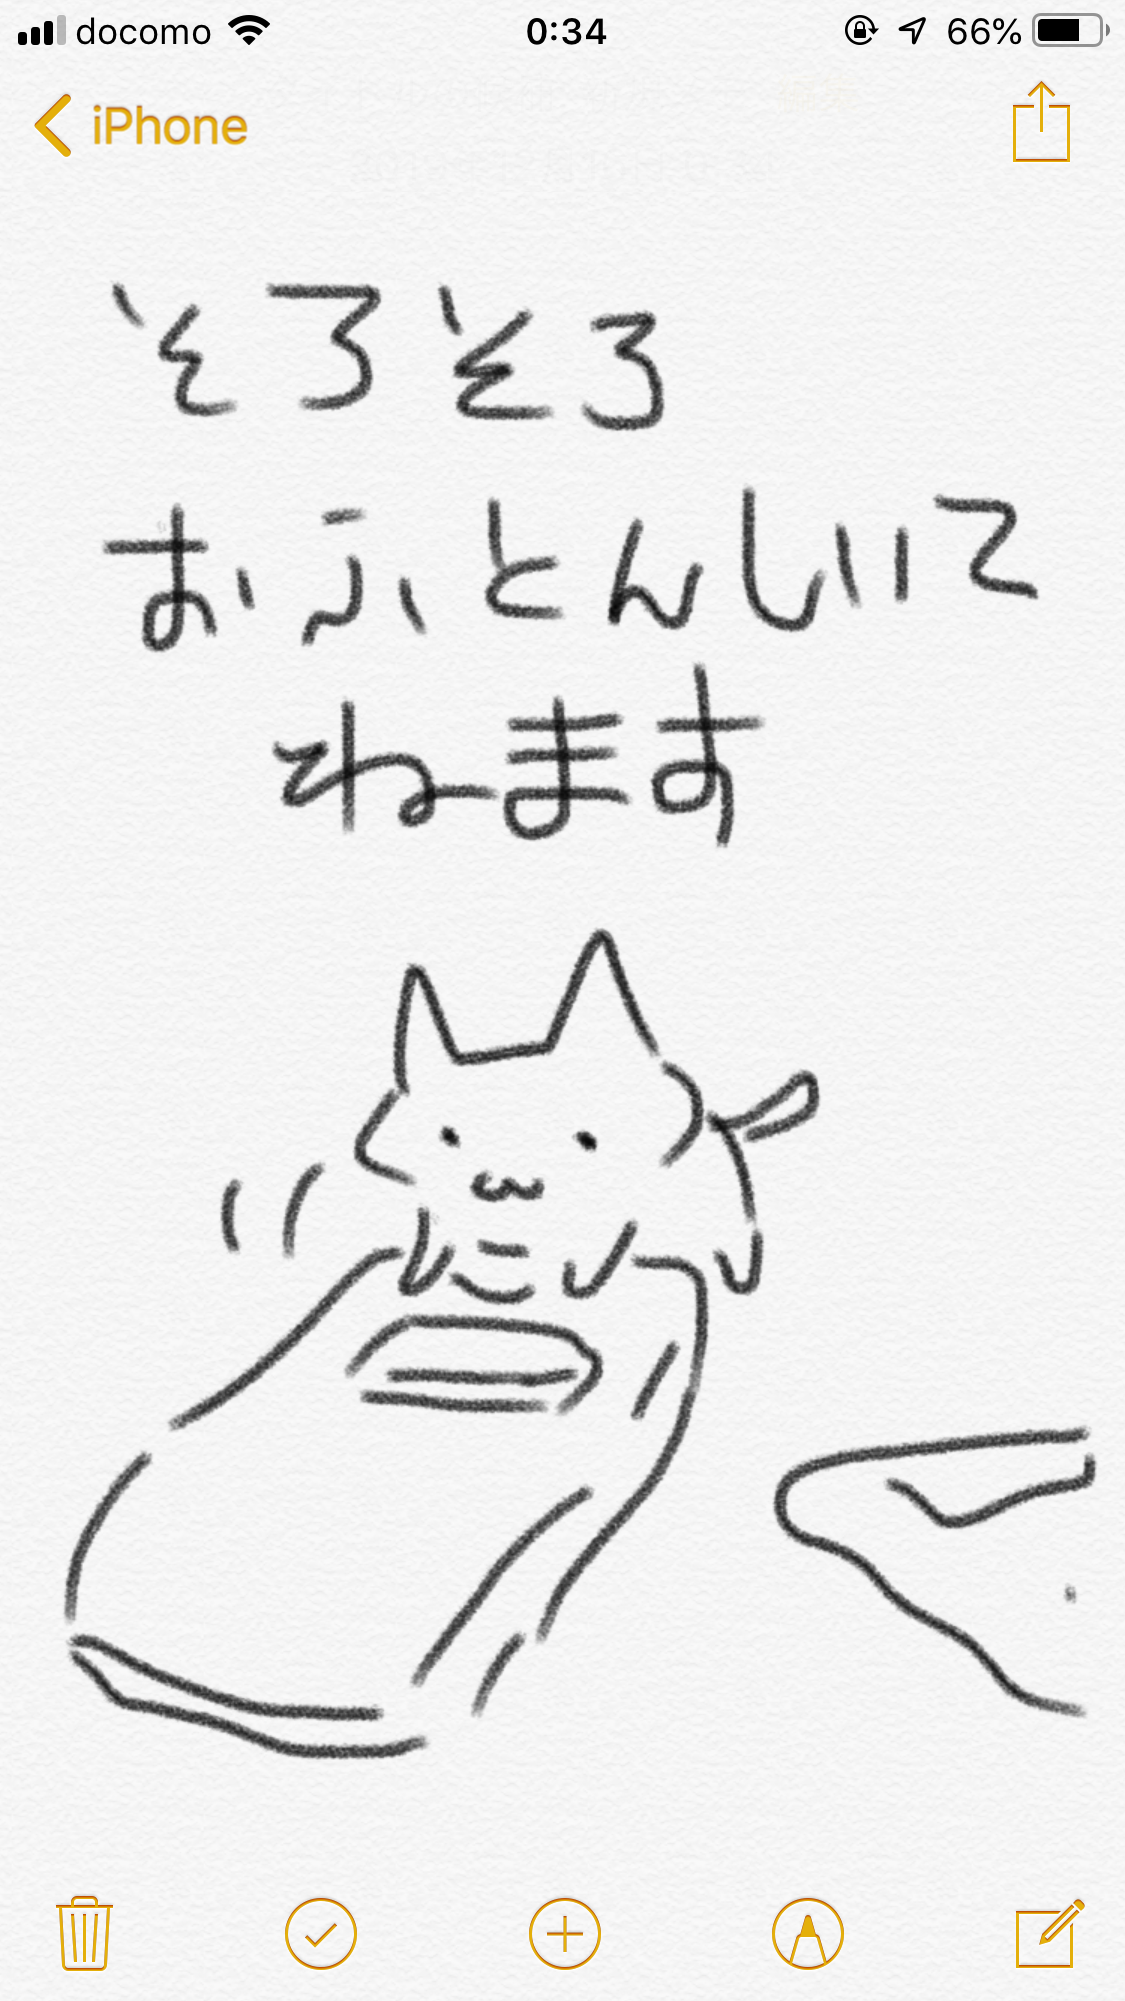 docomo 0:34 66%
iPhone
そろそろ
おふとんしいて
ねます